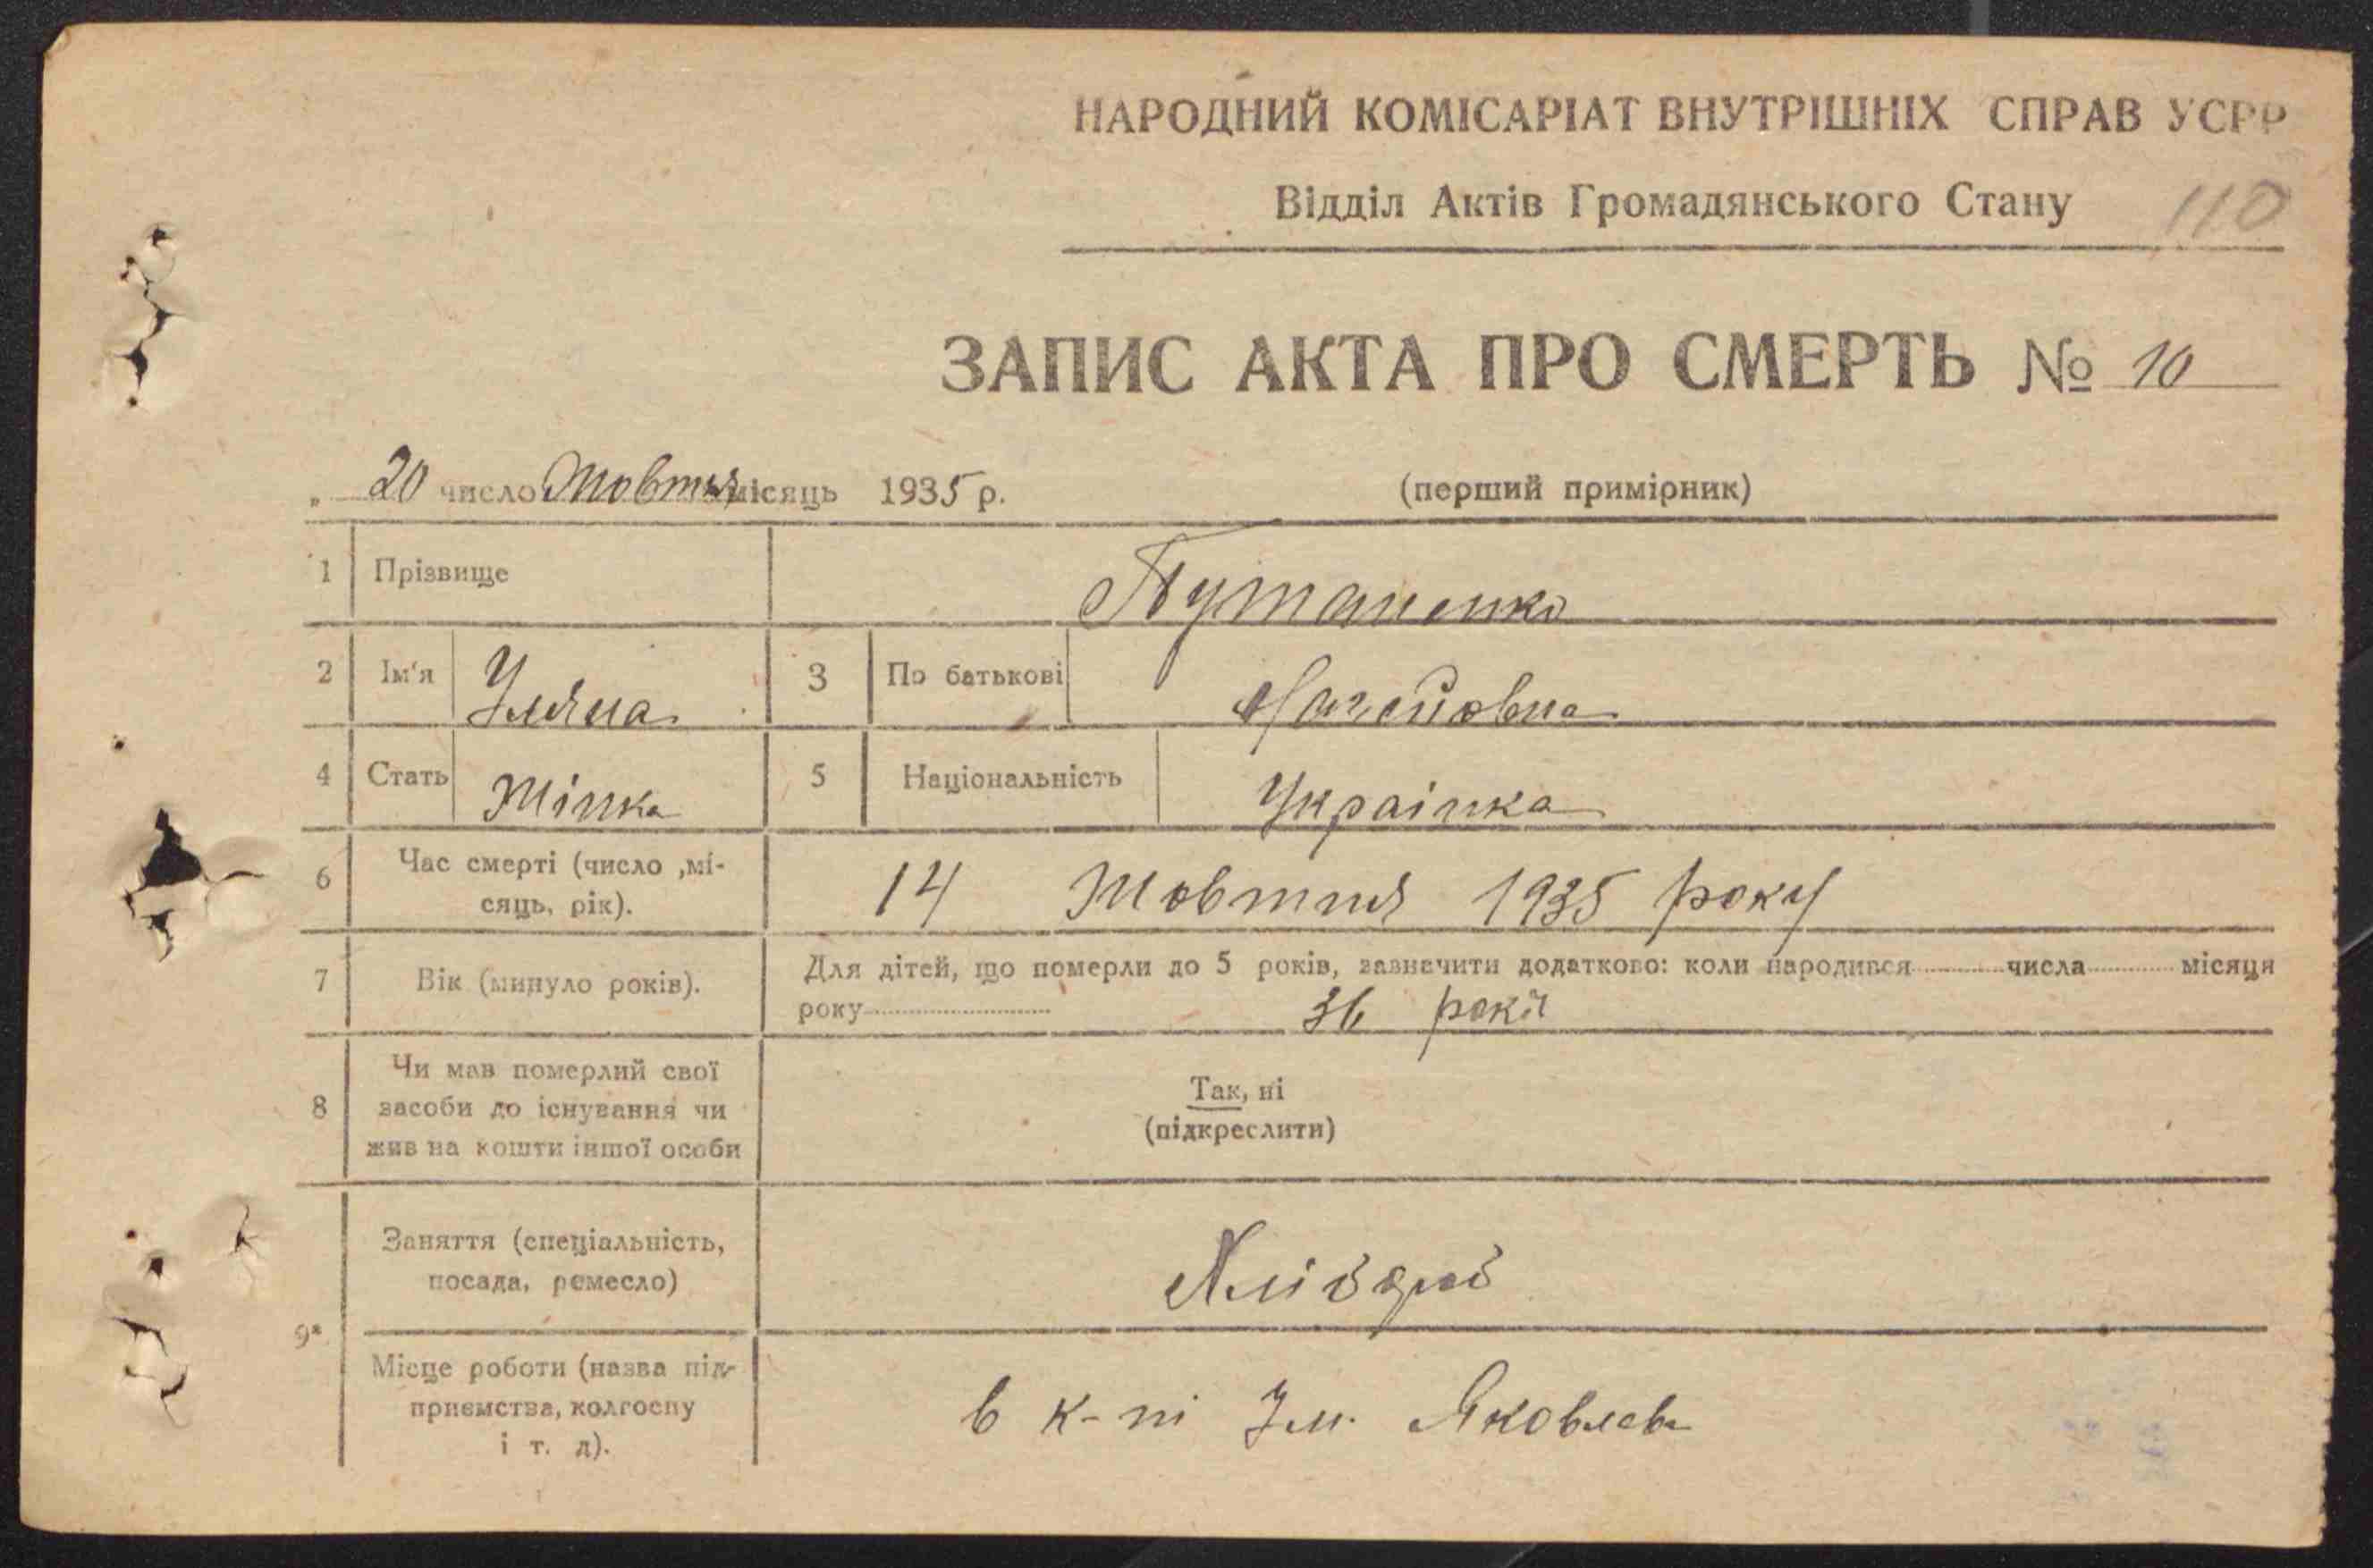 НАРОДНИЙ КОМІСАРІАТ ВНУТРІШНІХ СПРАВ УСРР
Відділ Актів Громадянського Стану 110
ЗАПИС АКТА ПРО СМЕРТЬ № 10
„ 20 число Жовтня місяць 1935 р. (перший примірник)
1 Прізвище Путаненко
2 Ім'я Уляна 3 По батькові
4 Стать Жінка 5 Національність Украінка
6 Час смерті (число ,мі-
сяць, рік). 14 Жовтня 1935 року
7 Вік (минуло років). Для дітей, що померли до 5 років, зазначити додатково: коли народився числа місяця
року 36 рокiв
8 Чи мав померлий свої
засоби до існування чи
жив на кошти іншої особи
Так, ні
(підкреслити)
9* Заняття (спеціальність,
посада, ремесло) Хлібороб
Місце роботи (назва під-
приємства, колгоспу
і т. д).
в к-пі Ім. Яковлева